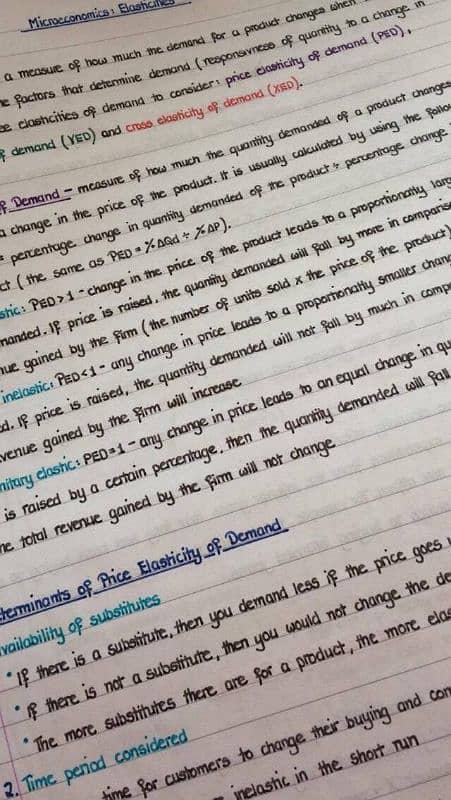 Microeconomics: Elasticities
a measure of how much the demand for a product changes when
factors that determine demand (responsivness of quantity to a change in
elasticities of demand to consider: price elasticity of demand (PED),
demand (YED) and cross elasticity of demand (XED).
of Demand - measure of how much the quantity demanded of a product changes
a change in the price of the product. It is usually calculated by using the
percentage change in quantity demanded of the product ÷ percentage change
(the same as PED = %ΔQd ÷ %ΔP).
PED>1 - change in the price of the product leads to a proportionally
If price is raised, the quantity demanded will fall by more in
gained by the firm (the number of units sold x the price of the product)
inelastic: PED<1 - any change in price leads to a proportionally smaller
If price is raised, the quantity demanded will not fall by much in
gained by the firm will increase
elastic: PED=1 - any change in price leads to an equal change in
is raised by a certain percentage, then the quantity demanded will fall
total revenue gained by the firm will not change
of Price Elasticity of Demand
of substitutes
• If there is a substitute, then you demand less if the price goes
• If there is not a substitute, then you would not change the
• The more substitutes there are for a product, the more
2. Time period considered
time for customers to change their buying and
inelastic in the short run